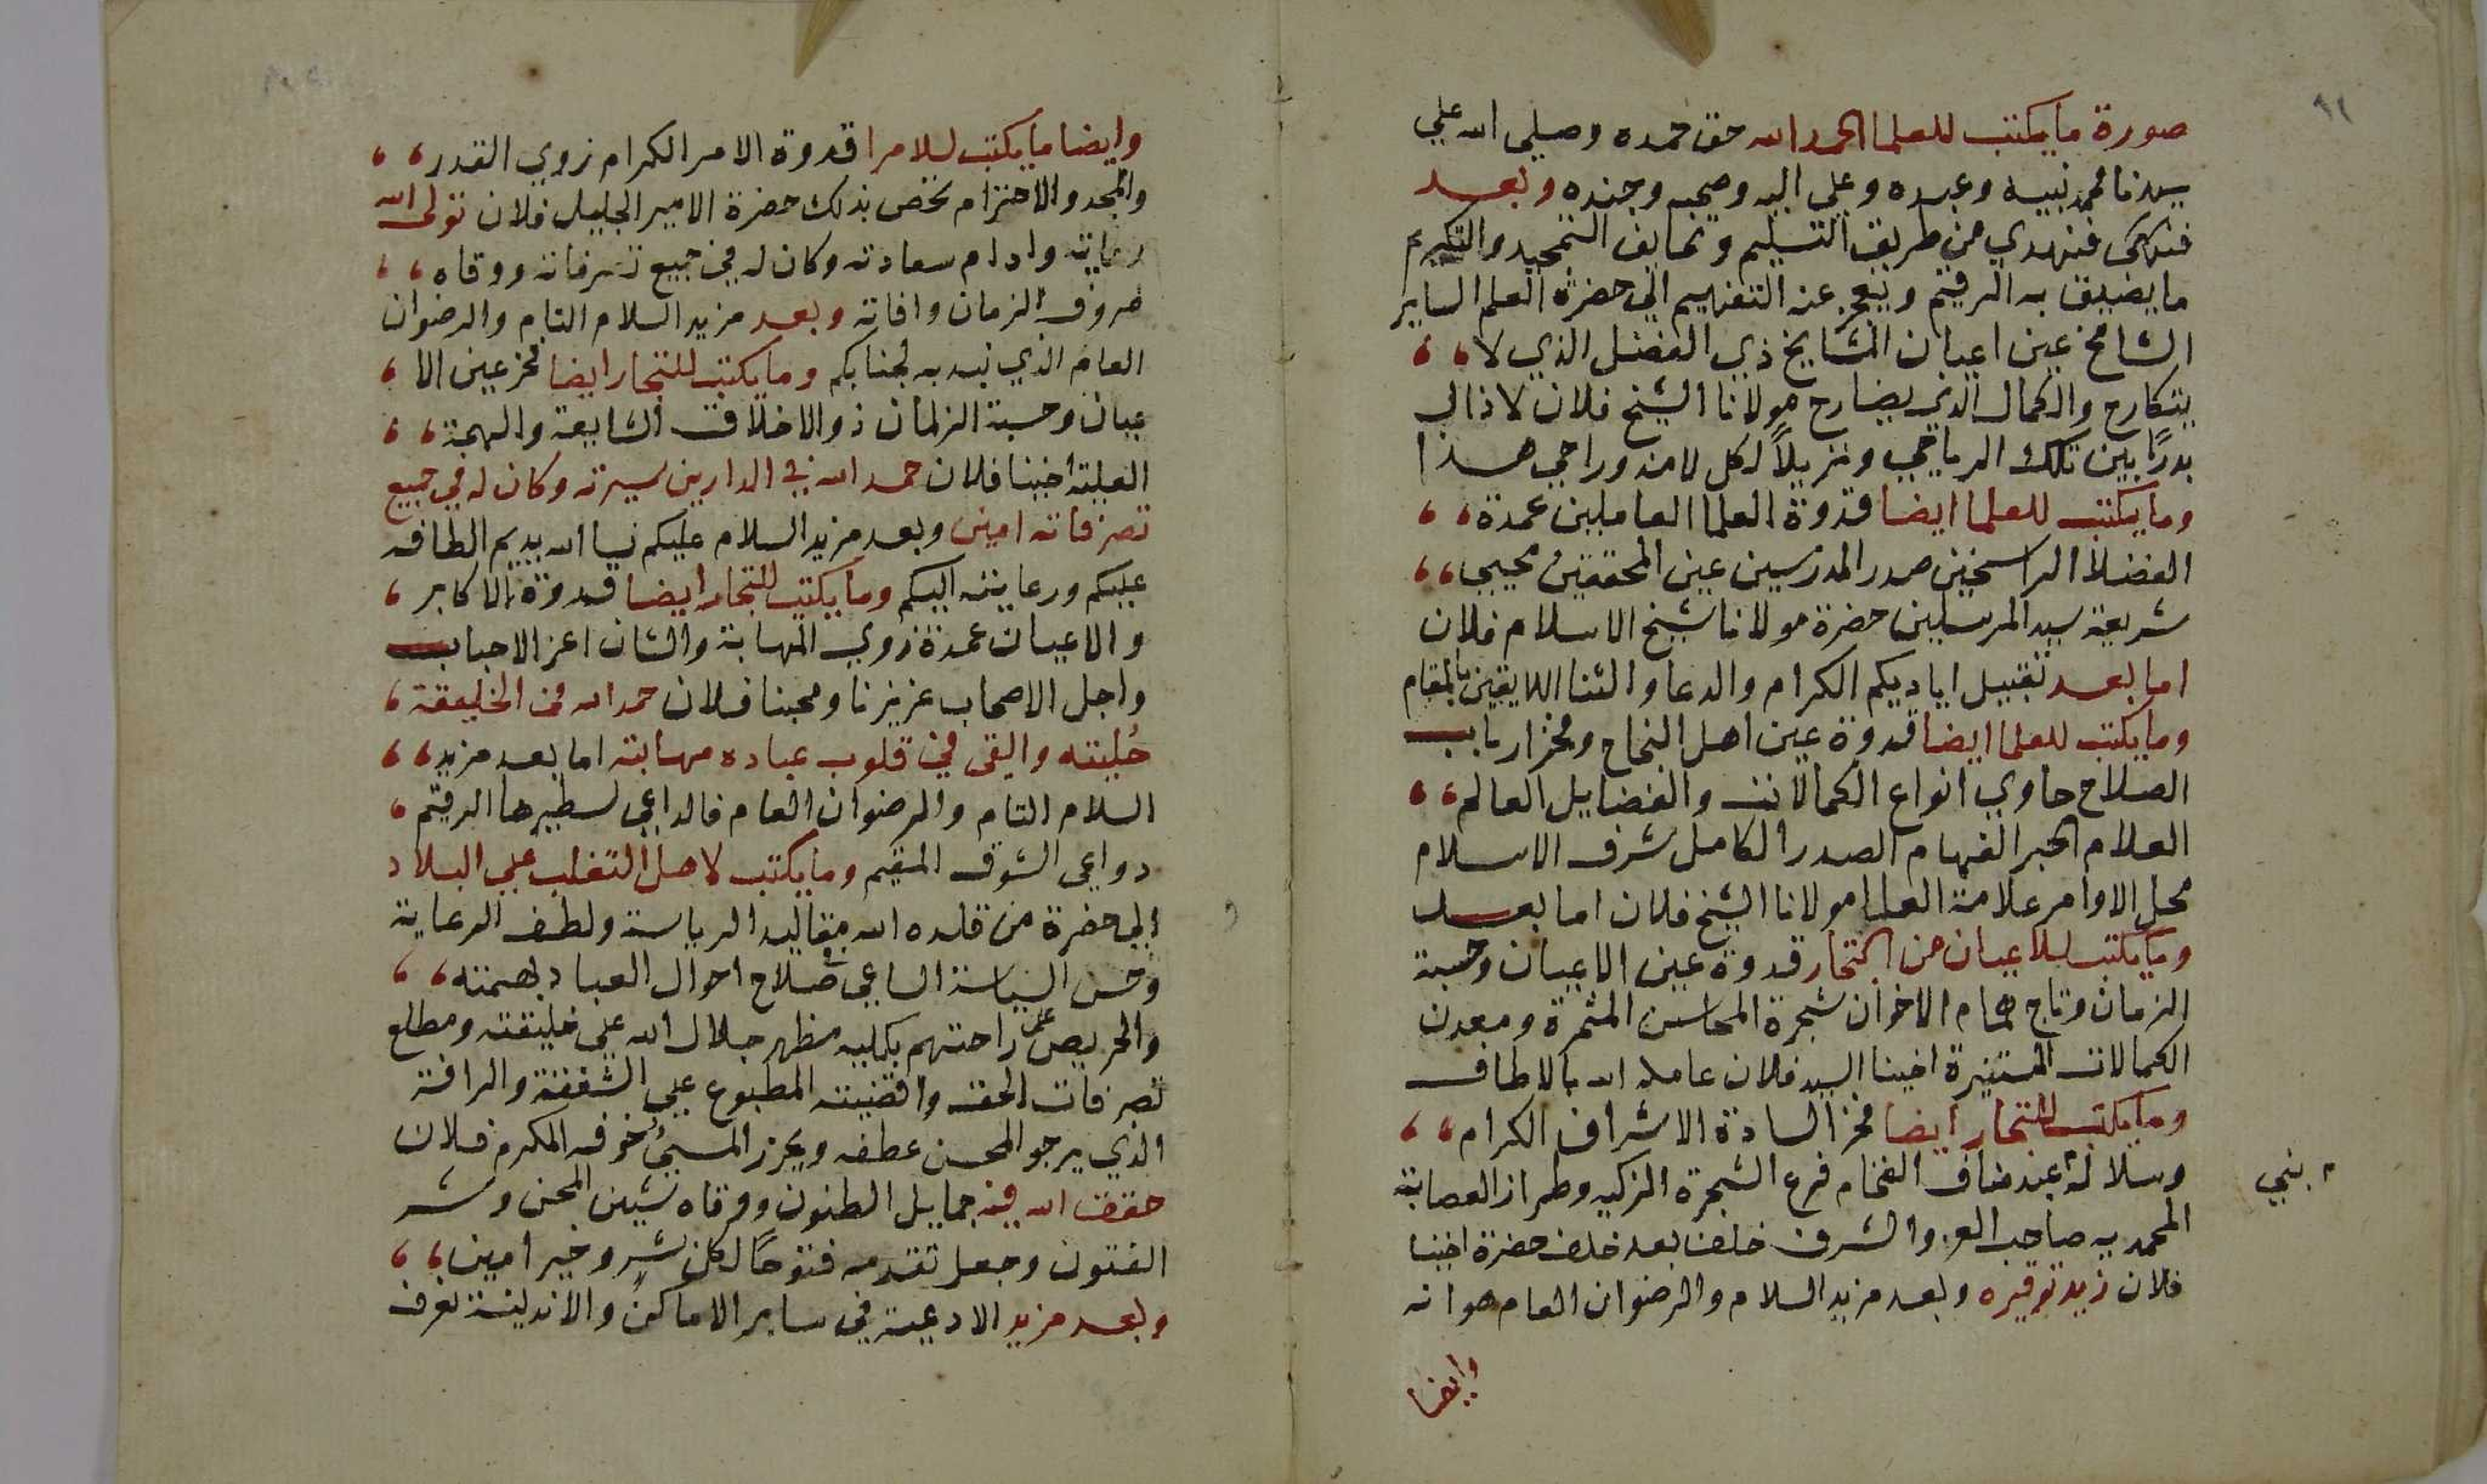 ٩١
صورة ما يكتب للعلما الحمد لله حق حمده وصلي الله علي
سيدنا محمد نبيه وعبده وعلي اليه وصحبه وجنده وبعد
فنهدي من طريف التسليم وتحايف التمجيد والتكريم
ما يضيق به الرقيم ويعجز عنه التفهيم الي حضرة العلم الساير
الشامخ عين اعيان المشايخ ذي الفضل الذي لا
يتكارح والكمال الذي يضارح مولانا الشيخ فلان لا ذال
بدرًا بين تلك الرياحي ومزيلاً لكل لامنه وراجي هذا
وما يكتب للعلما ايضا قدوة العلما العاملين عمدة
الفضلا الراسخين صدر المدرسين عين المحققين محيي
شريعة سيد المرسلين حضرة مولانا شيخ الاسلام فلان
اما بعد تقبيل اياديكم الكرام والدعا والثنا اللايقين بالمقام
وما يكتب للعلما ايضا قدوة عين اهل النجاح وفخر ارباب
الصلاح حاوي انواع الكمالات والفضايل العالم
العلام الحبر الفهام الصدر الكامل شرف الاسلام
محل الاوامر علامة العلما مولانا الشيخ فلان اما بعد
وما يكتب للاعيان من التجار قدوة عين الاعيان وحسبة
الزمان وتاج همام الاخوان شجرة المحاسن المثمرة ومعدن
الكمالات المستنيرة اخينا السيد فلان عامله الله بالالطاف
وما يكتب للتجار ايضا فخر السادة الاشراف الكرام
وسلالة عبد مناف الفخام فرع الشجرة الزكيه وطراز العصابة
بني
المحمديه صاحب العز والشرف خلف بعد خلف حضرة اخينا
فلان زيد توقيره وبعد مزيد السلام والرضوان العام هو انه
وايضا
وايضا ما يكتب للامرا قدوة الامرا الكرام زوي القدر
والمجد والاحترام نخص بذلك حضرة الامير الجليل فلان تولى الله
رعايته وادام سعادته وكان له في جميع تسرفاته ووقاه
صروف الزمان وافاته وبعد مزيد السلام التام والرضوان
العام الذي نبد به لجنابكم وما يكتب للتجار ايضا فخر عين الا
عيان وحسبة الزمان ذو الاخلاق الشايعة والهمة
العليته اخينا فلان حمد الله في الدارين سيرته وكان له في جميع
تصرفاته امين وبعد مزيد السلام عليكم نسا الله يديم الطافه
عليكم ورعايته اليكم وما يكتب للتجار ايضا قدوة الاكابر
والاعيان عمدة زوي المهابة والشان اعز الاحباب
واجل الاصحاب عزيزنا ومحبنا فلان حمد الله في الخليقة
حُليته والقى في قلوب عباده مهابته اما بعد مزيد
السلام التام والرضوان العام فالداعي لسطيرها الرقيم
دواعي الشوق المقيم وما يكتب لاهل التغلب علي البلاد
الي حضرة من قلده الله مقاليد الرياسة ولطف الرعاية
وحسن السياسة الساعي في صلاح احوال العباد بهمته
والحريص على راحتهم بكليه مظهر جلال الله علي خليقته ومطلع
تصرفات الحق واقضيته المطبوع علي الشفقة والرافة
الذي يرجو المحسن عطفه ويحزر المسيئُ خوفه المكرم فلان
حقق الله فيه جمايل الظنون ووقاه شين المحن وشر
الفتون وجعل تقدمه فتوحًا لكل شر وخير امين
وبعد مزيد الادعية في ساير الاماكن والاندية نعرف